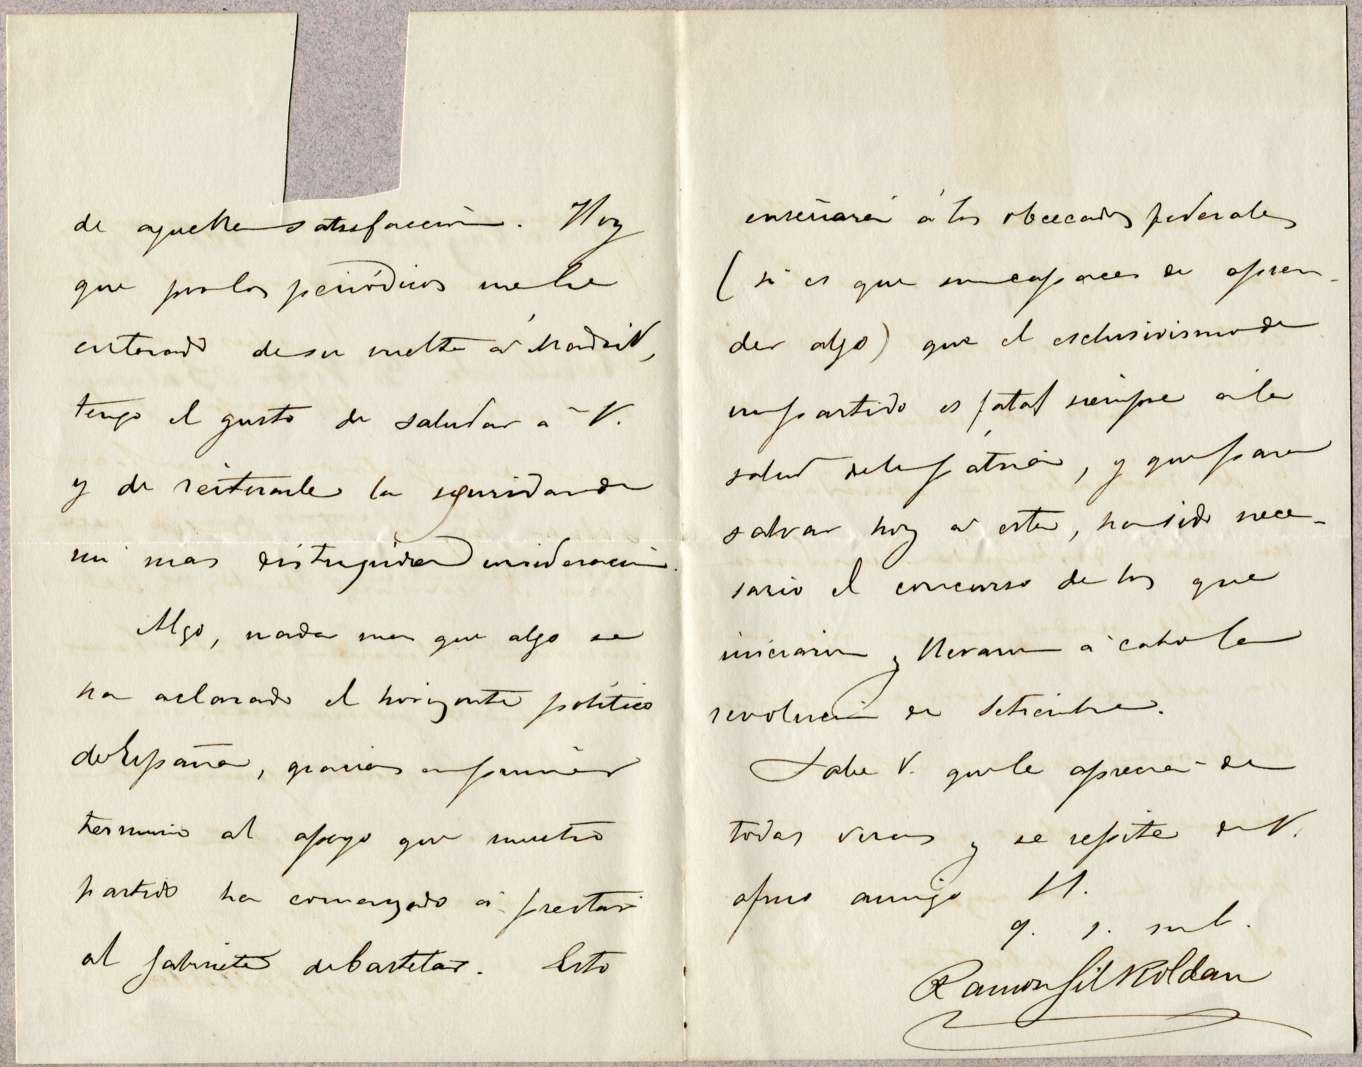 de aquella satisfacción. Hoy
que por los periódicos me he
enterado de su vuelta á Madrid,
tengo el gusto de saludar á V.
y de reiterarle la seguridad de
mi mas distinguida consideración.
Algo, nada mas que algo se
ha aclarado el horizonte político
de España, gracias en primer
termino al apoyo que nuestro
partido ha comenzado á prestar
al gabinete de Castelar. Esto
enseñará á los obcecados federales
(si es que son capaces de apren-
der algo) que el esclusivismo de
un partido es fatal siempre á la
salud de la pátria, y que para
salvar hoy á esta, ha sido nece-
sario el concurso de los que
iniciaron y llevaron á cabo la
revolución de Setiembre.
Sabe V. que le aprecia de
todas veras y se repite de V.
afmo amigo
q. s. m. b.
Ramon Gil Roldan